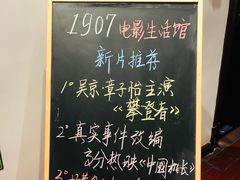 1907电影生活馆
新片推荐
1°吴京章子怡主演
《攀登者》
2°真实事件改编
高分热映《中国机长》
3°